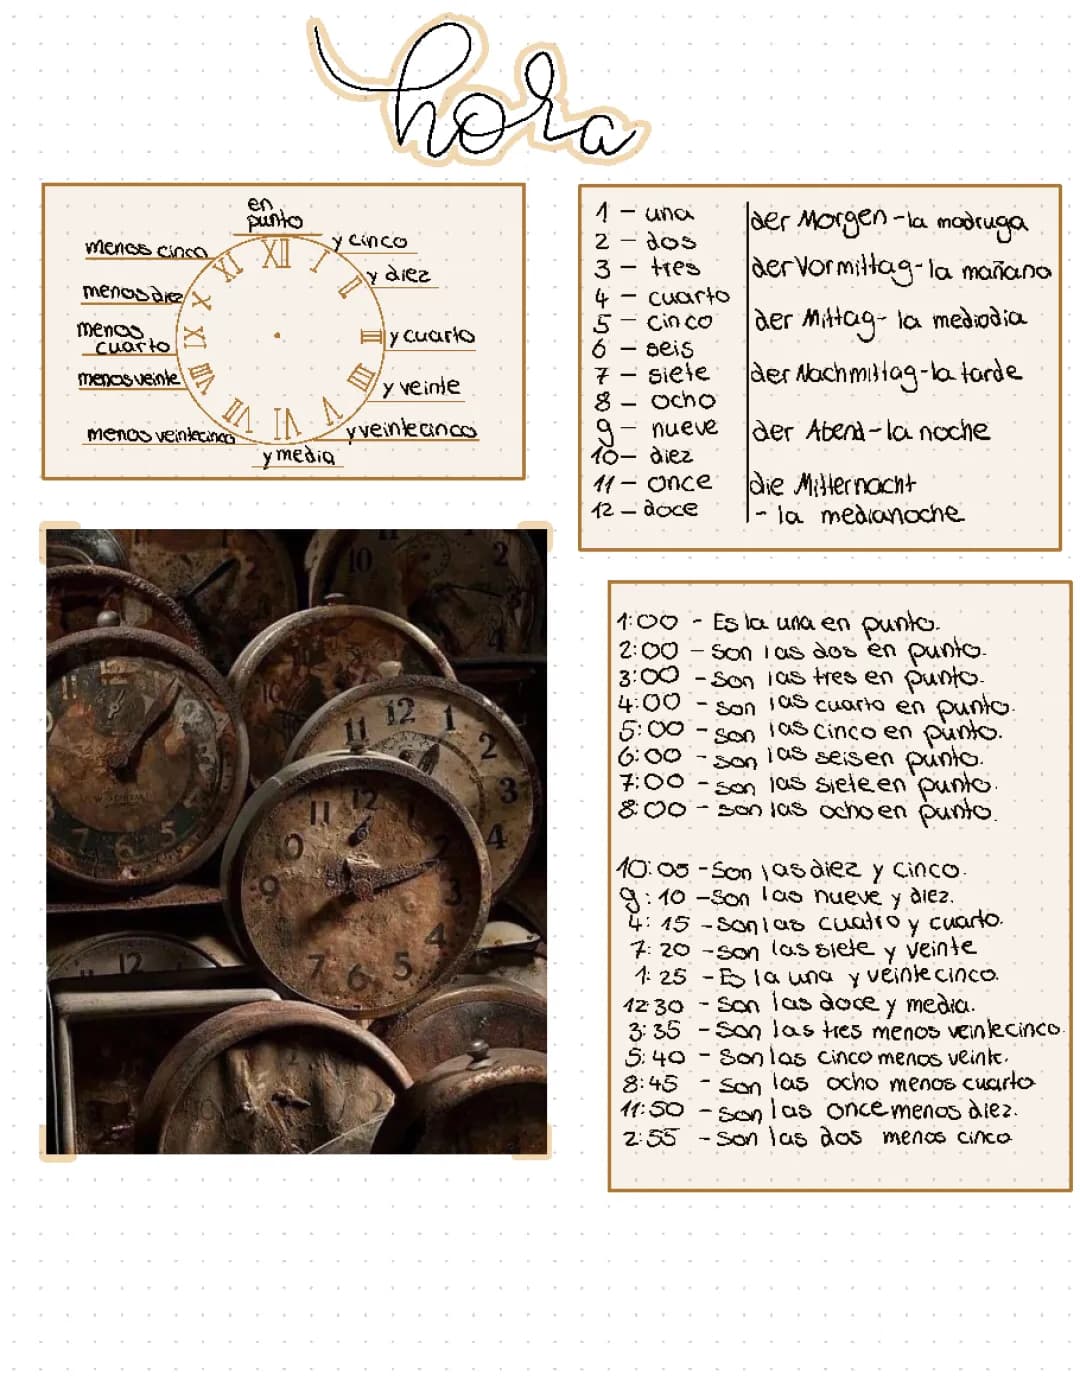 hora
en
punto
y cinco
y diez
y cuarto
y veinte
y veintecinco
y media
menos veintecinco
menos veinte
menos
cuarto
menos diez
menos cinco
XII
I
II
III
IIII
V
VI
VII
VIII
XI
X
XI
1 - una
2 - dos
3 - tres
4 - cuarto
5 - cinco
6 - seis
7 - siete
8 - ocho
9 - nueve
10 - diez
11 - once
12 - doce
der Morgen - la madruga
der Vormittag - la mañana
der Mittag - la mediodia
der Nachmittag - la tarde
der Abend - la noche
die Mitternacht
- la medianoche
1:00 - Es la una en punto.
2:00 - son las dos en punto.
3:00 - son las tres en punto.
4:00 - son las cuarto en punto.
5:00 - son las cinco en punto.
6:00 - son las seis en punto.
7:00 - son las siete en punto.
8:00 - son las ocho en punto.
10:05 - Son las diez y cinco.
9:10 - Son las nueve y diez.
4:15 - son las cuatro y cuarto.
7:20 - son las siete y veinte
1:25 - Es la una y veintecinco.
12:30 - Son las doce y media.
3:35 - Son las tres menos veintecinco.
5:40 - Son las cinco menos veinte.
8:45 - Son las ocho menos cuarto
11:50 - son las once menos diez.
2:55 - Son las dos menos cinco
10
2
4
11
7
6
5
11
12
1
2
3
4
11
12
2
3
4
5
6
7
9
12